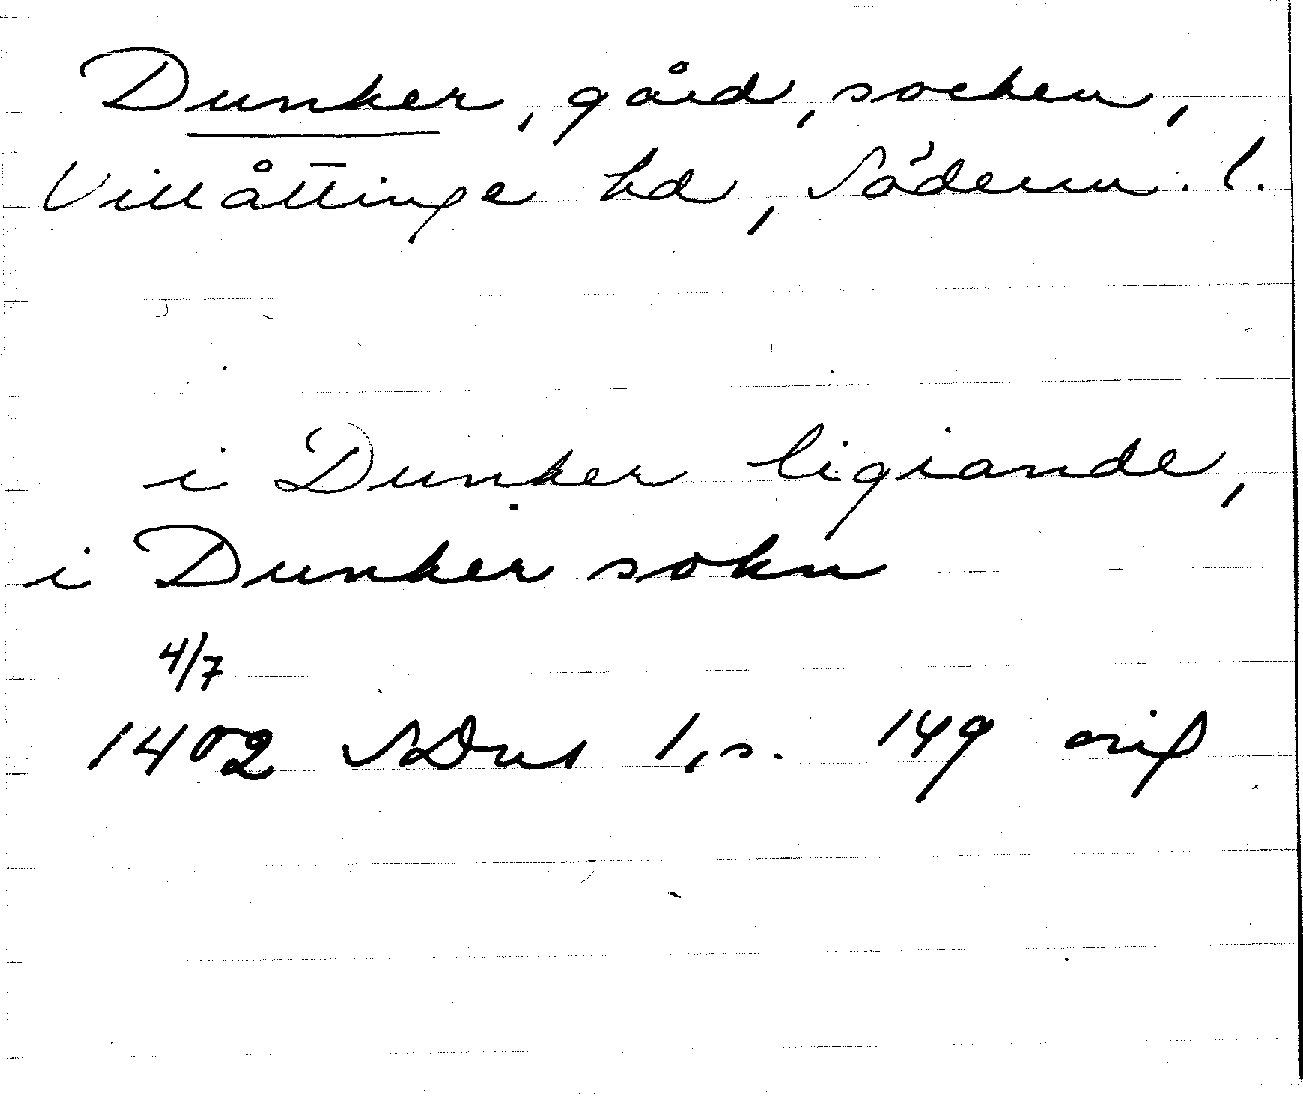 Dunker, gård, socken,
Villåttinge hd, Söderm. l.
i Dunker ligiande,
i Dunker sokn
4/7
1402 SDns 1, s. 149 orig